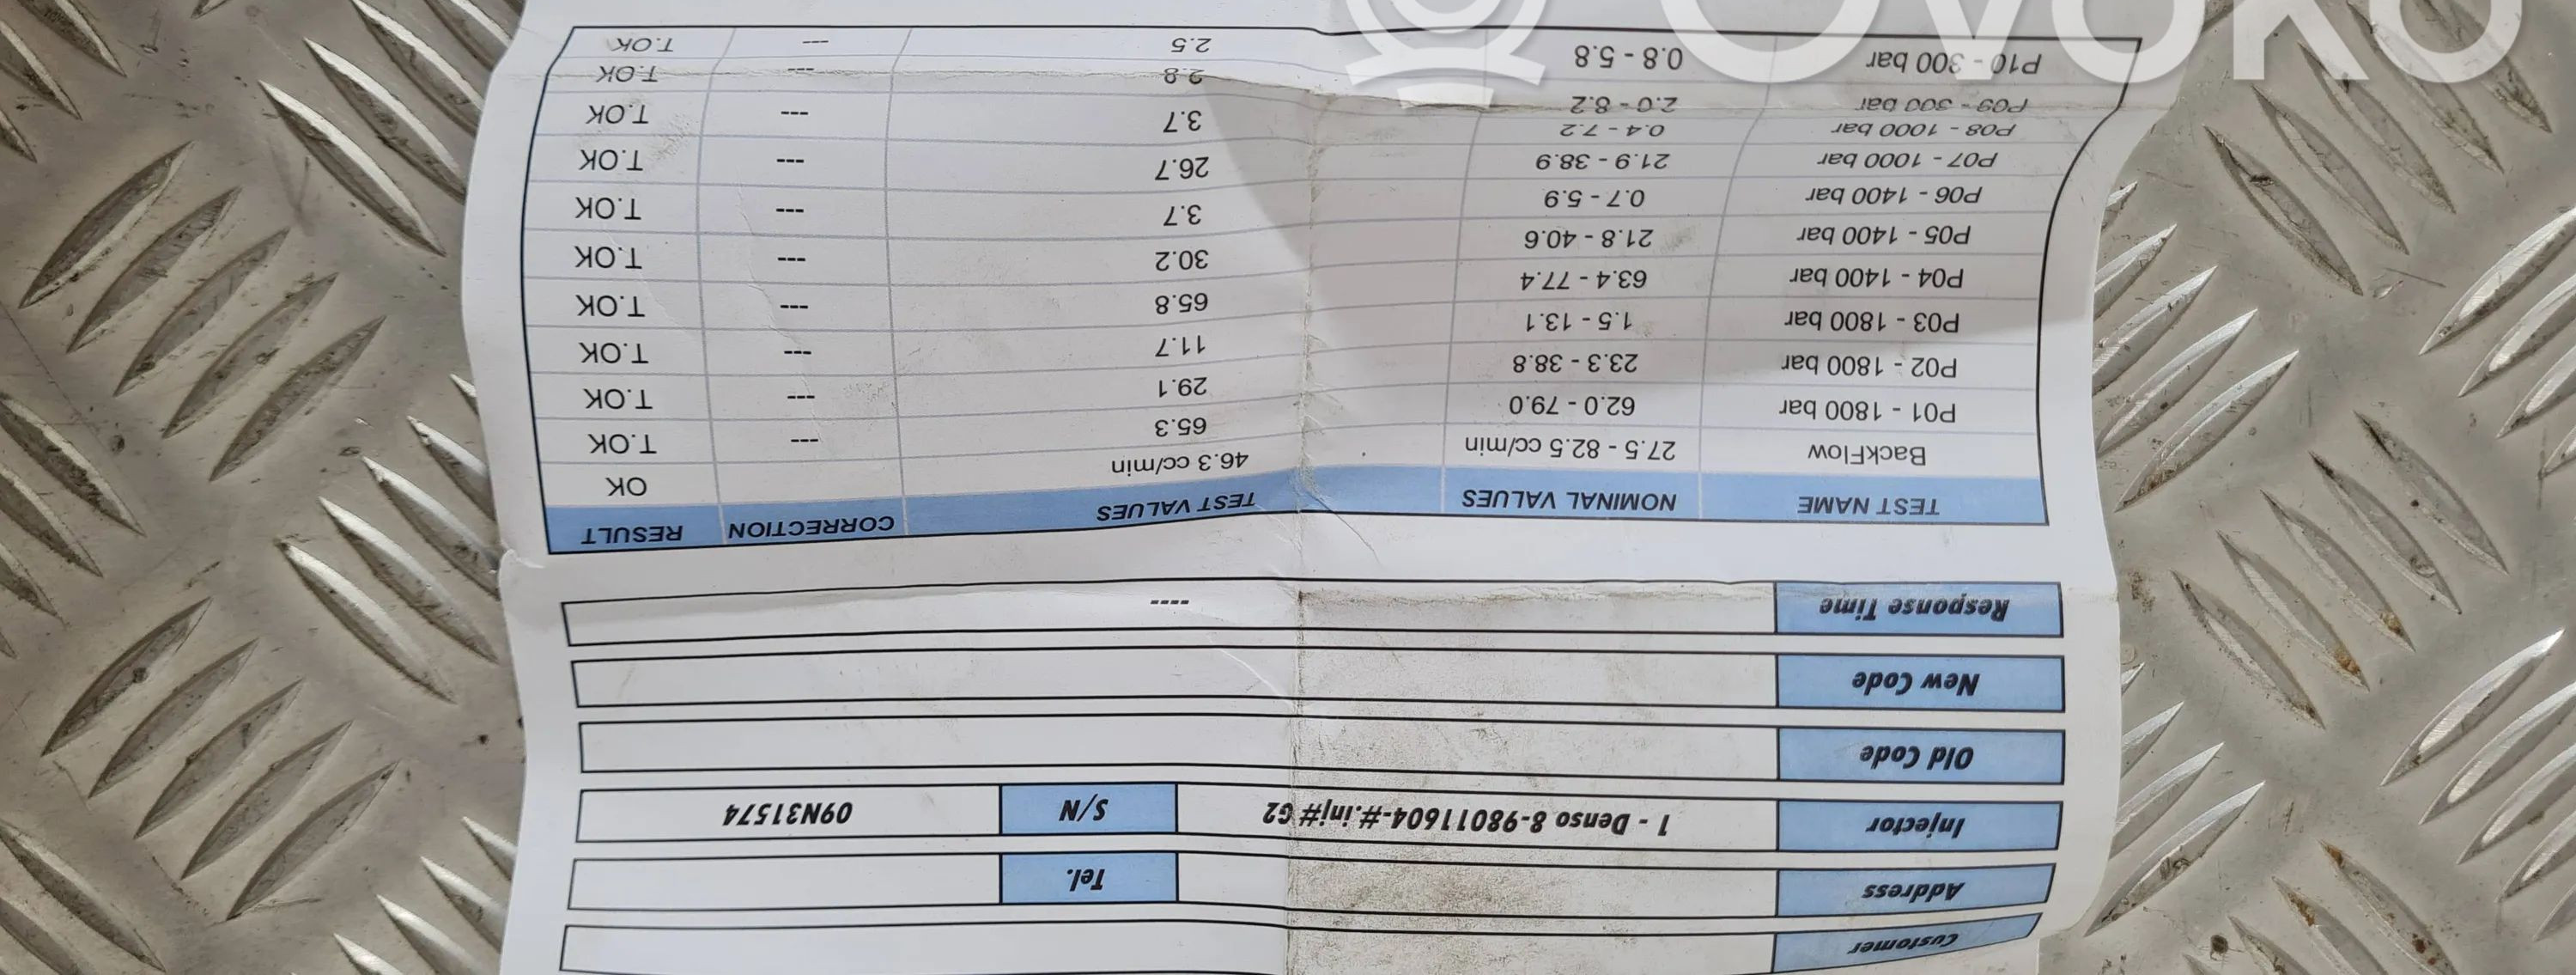 Customer
Address Tel.
Injector 1 - Denso 8-98011604-#.inj# G2 S/N 09N31574
Old Code
New Code
Response Time ----
TEST NAME NOMINAL VALUES TEST VALUES CORRECTION RESULT
BackFlow 27.5 - 82.5 cc/min 46.3 cc/min OK
P01 - 1800 bar 62.0 - 79.0 65.3 --- T.OK
P02 - 1800 bar 23.3 - 38.8 29.1 --- T.OK
P03 - 1800 bar 1.5 - 13.1 11.7 --- T.OK
P04 - 1400 bar 63.4 - 77.4 65.8 --- T.OK
P05 - 1400 bar 21.8 - 40.6 30.2 --- T.OK
P06 - 1400 bar 0.7 - 5.9 3.7 --- T.OK
P07 - 1000 bar 21.9 - 38.9 26.7 --- T.OK
P08 - 1000 bar 0.4 - 7.2 3.7 --- T.OK
P09 - 300 bar 2.0 - 8.2 2.8 --- T.OK
P10 - 300 bar 0.8 - 5.8 2.5 --- T.OK
OVOKO